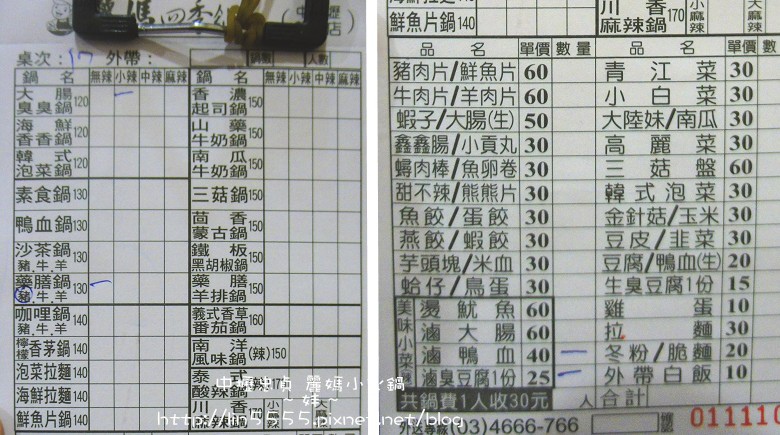 桌次: 17 外帶: 人數
鍋 名 無辣 小辣 中辣 麻辣 鍋 名 無辣 小辣 中辣 麻辣
大腸臭臭鍋 120 香濃起司鍋 150
海鮮香香鍋 120 山藥牛奶鍋 150
韓式泡菜鍋 120 南瓜牛奶鍋 150
素食鍋 130 三菇鍋 150
鴨血鍋 130 茴香蒙古鍋 150
沙茶鍋 豬.牛.羊 130 鐵板黑胡椒鍋 150
藥膳鍋 豬.牛.羊 130 藥膳羊排鍋 150
咖哩鍋 豬.牛.羊 140 義式香草番茄鍋 160
檸檬香茅鍋 140 南洋風味鍋 (辣) 150
泡菜拉麵 140 泰式酸辣鍋
海鮮拉麵 140 川香麻辣鍋
鮮魚片鍋 140
鮮魚片鍋 140 川香麻辣鍋 170 小麻辣 大麻辣
品 名 單價 數量 品 名 單價 數
豬肉片/鮮魚片 60 青江菜 30
牛肉片/羊肉片 60 小白菜 30
蝦子/大腸(生) 50 大陸妹/南瓜 30
鑫鑫腸/小貢丸 30 高麗菜 30
蟳肉棒/魚卵卷 30 三菇盤 60
甜不辣/熊熊片 30 韓式泡菜 30
魚餃/蛋餃 30 金針菇/玉米 30
燕餃/蝦餃 30 豆皮/韭菜 30
芋頭塊/米血 30 豆腐/鴨血(生) 20
蛤仔/鳥蛋 30 生臭豆腐1份 15
美味小菜 燙魷魚 60 雞蛋 10
滷大腸 60 拉麵 30
滷鴨血 40 冬粉/脆麵 20
滷臭豆腐1份 25 外帶白飯 10
共鍋費1人收30元 人 合計
外送專線 (03)4666-766 011110
中壢桌貞 麗媽小火鍋
~娃~
http://lin5555.pixnet.net/blog